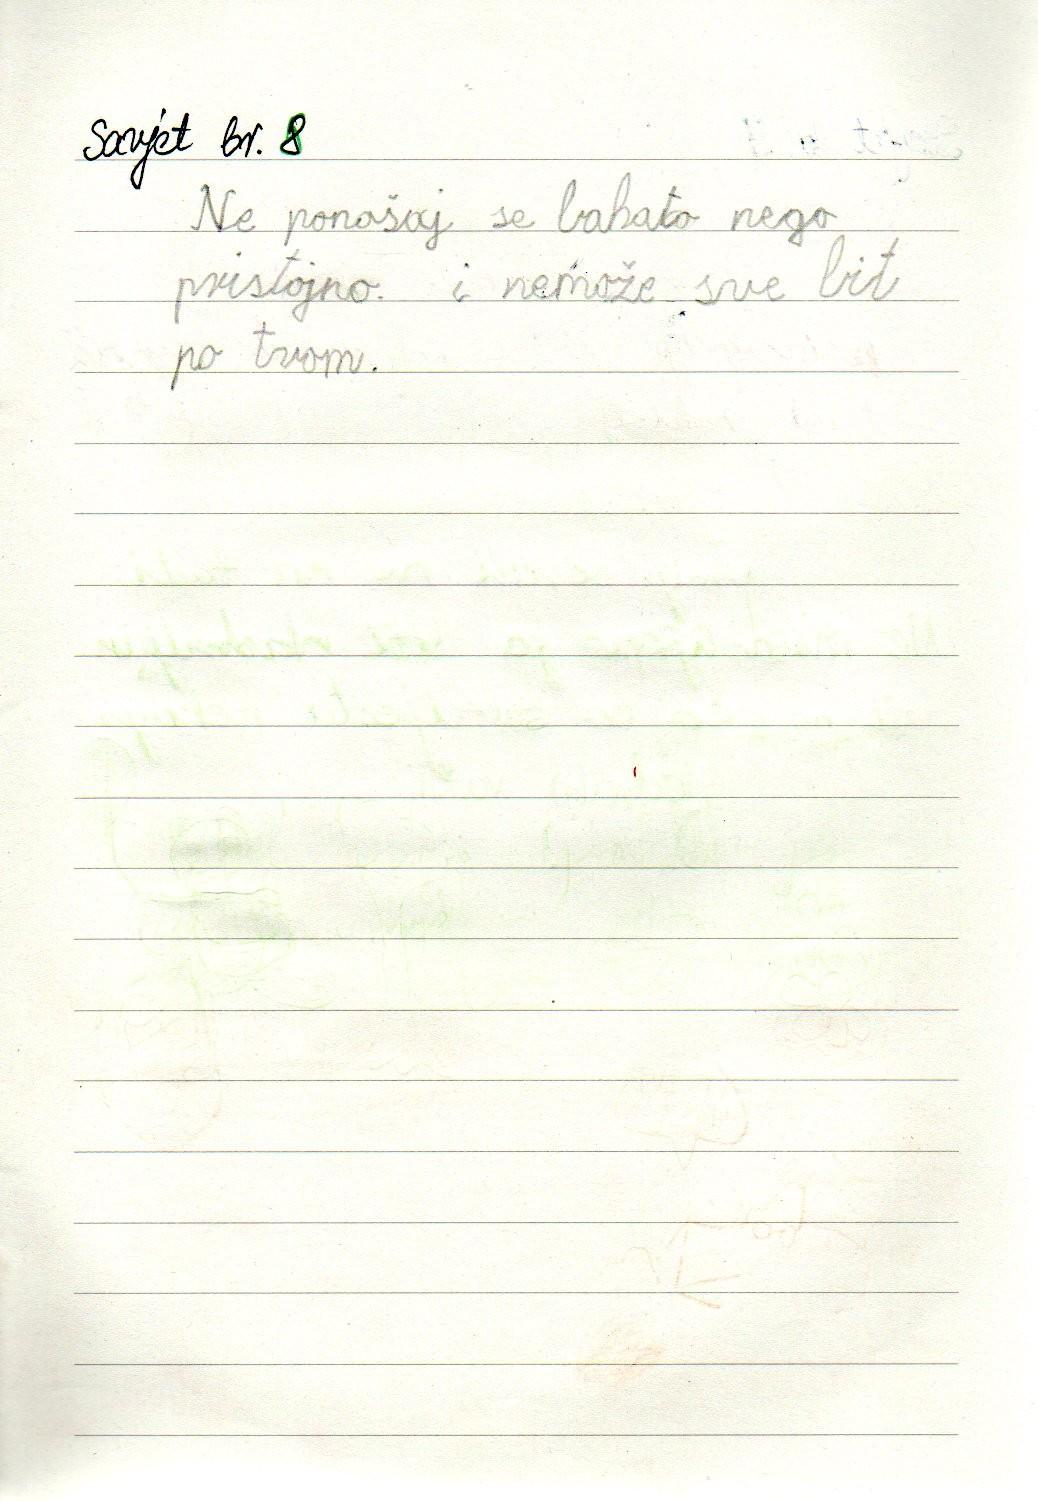 Savjet br. 8
Ne ponašaj se bahato nego
pristojno. i nemože sve bit
po tvom.